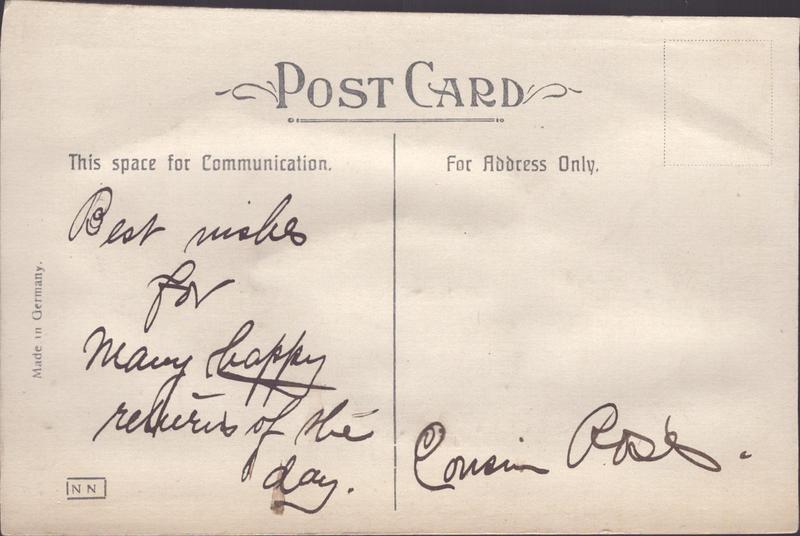 POST CARD
This space for Communication.
For Address Only.
Best wishes
for
Many happy
returns of the
day.
Cousin Rose.
Made in Germany.
NN